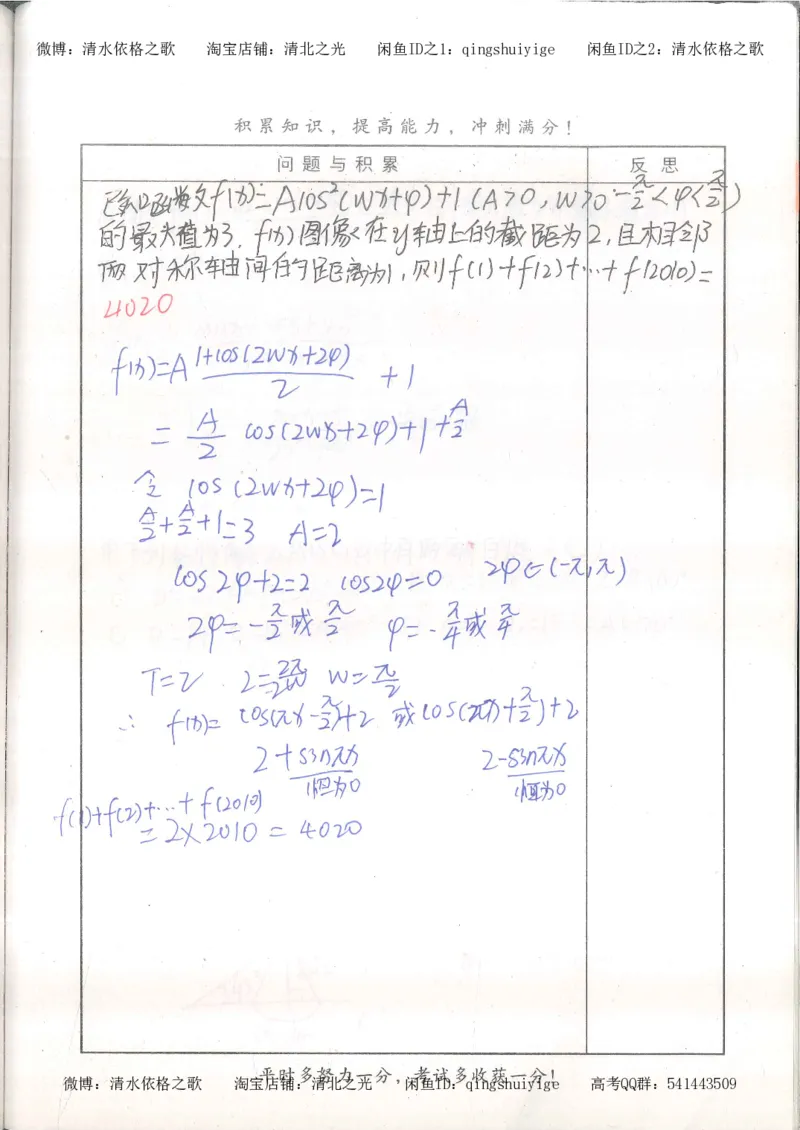 微博：清水依格之歌 淘宝店铺：清北之光 闲鱼ID之1：qingshuiyige 闲鱼ID之2：清水依格之歌
积累知识，提高能力，冲刺满分！
问题与积累 反思
已知函数f(x)=Acos²(wx+φ)+1(A>0,w>0,-π/2<φ<π/2)
的最大值为3，f(x)图像在y轴上的截距为2，且相邻
两对称轴间的距离为1，则f(1)+f(2)+…+f(2010)=
4020
f(x)=A (1+cos(2wx+2φ))/2 +1
=A/2 cos(2wx+2φ)+1+A/2
令 cos(2wx+2φ)=1
A/2+A/2+1=3 A=2
cos2φ+2=2 cos2φ=0 2φ∈(-π,π)
2φ=-π/2或π/2 φ=-π/4或π/4
T=2 2=2π/2w w=π/2
∴ f(x)=cos(πx-π/2)+2 或cos(πx+π/2)+2
2+sinπx 2-sinπx
恒为0 恒为0
f(1)+f(2)+…+f(2010)
=2×2010=4020
平时多努力一分，考试多收获一分！
微博：清水依格之歌 淘宝店铺：清北之光 闲鱼ID：qingshuiyige 高考QQ群：541443509